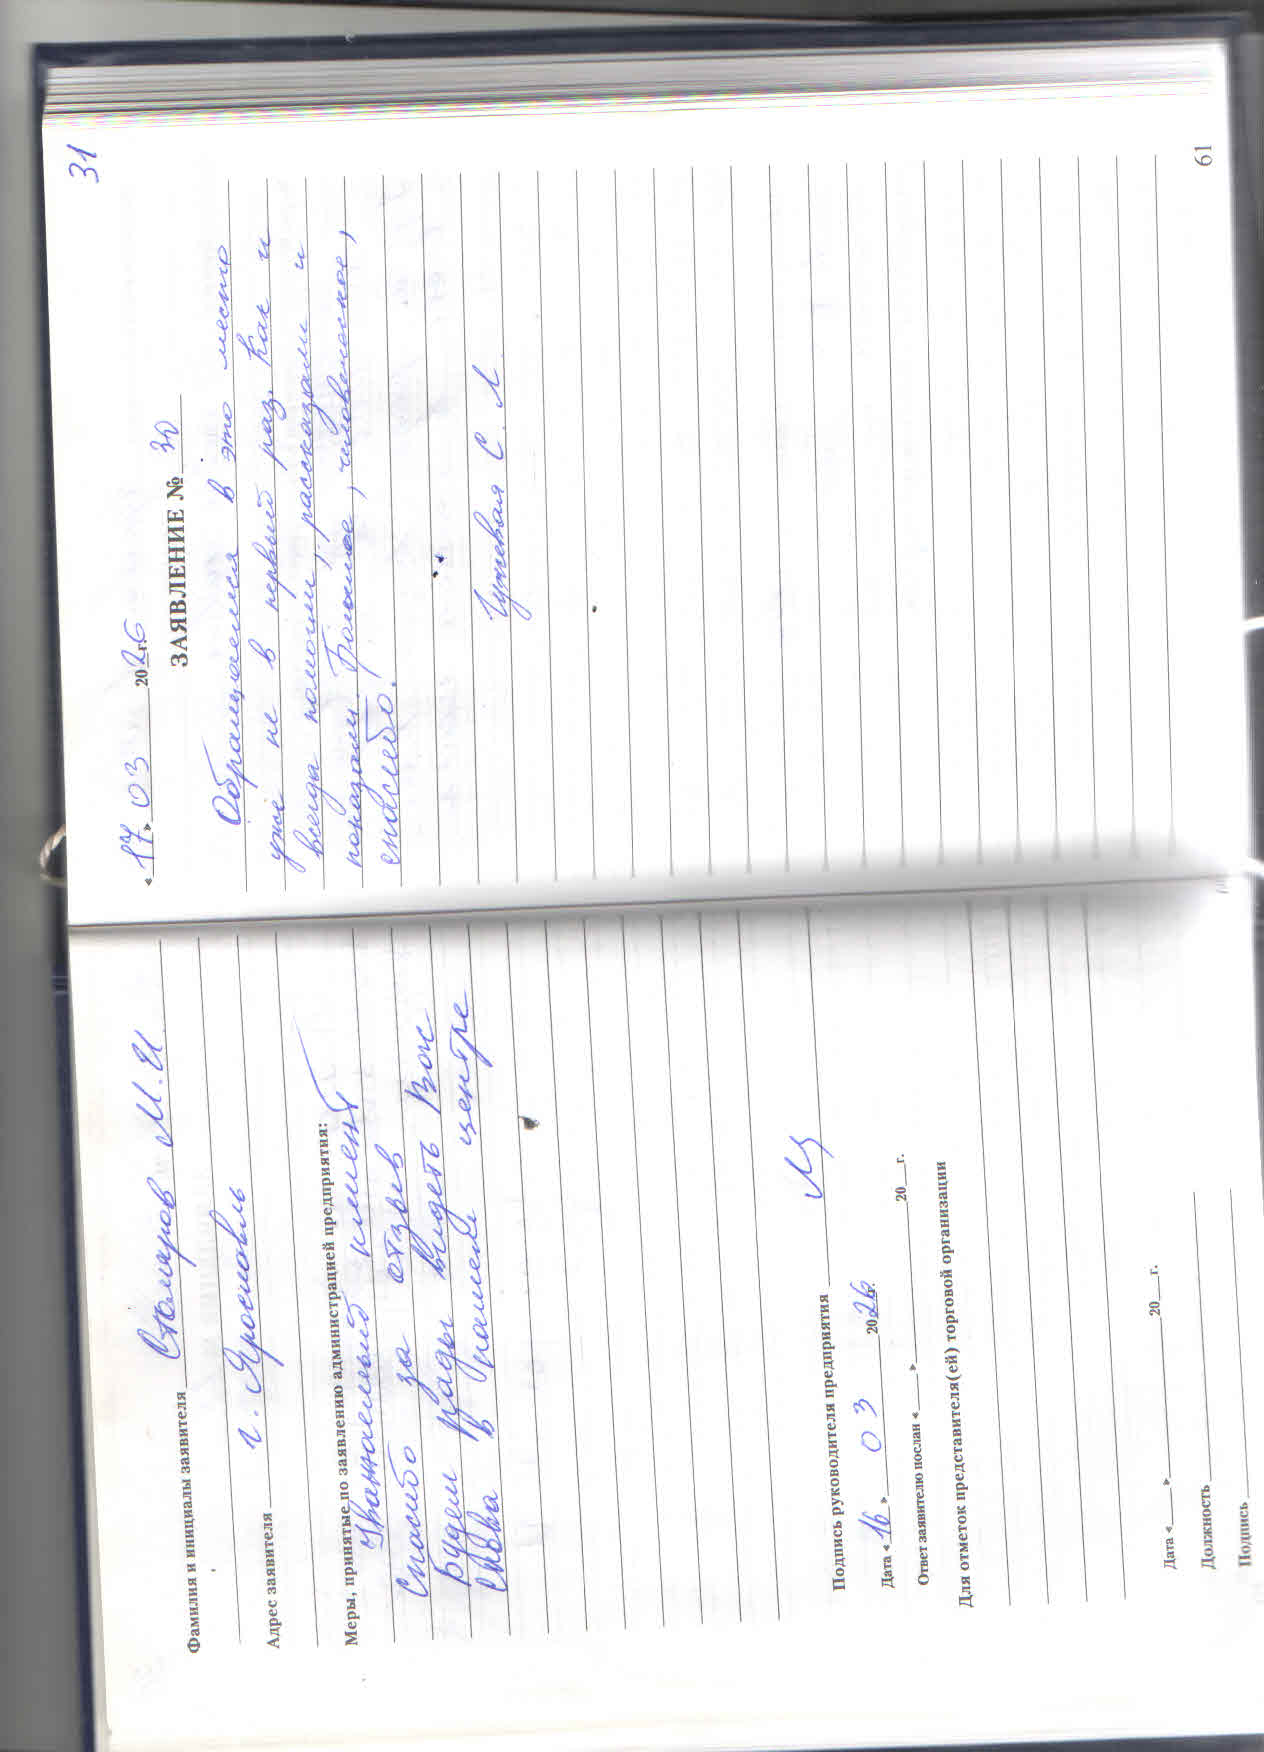 Фамилия и инициалы заявителя Столяров М.И
Адрес заявителя г. Ярославль
Меры, принятые по заявлению администрацией предприятия:
Уважаемый клиент
Спасибо за отзыв
Будем рады видеть Вас
снова в нашем центре
Подпись руководителя предприятия
Дата « 16 » 03 2026 г.
Ответ заявителю послан «___»___ 20__ г.
Для отметок представителя(ей) торговой организации
Дата «___»___ 20__ г.
Должность
Подпись
31
« 17 » 03 2026 г.
ЗАЯВЛЕНИЕ № 30
Обращаемся в это место
уже не в первый раз. Как и
всегда помогли, рассказали и
показали. Большое, человеческое,
спасибо!
С. Л
61